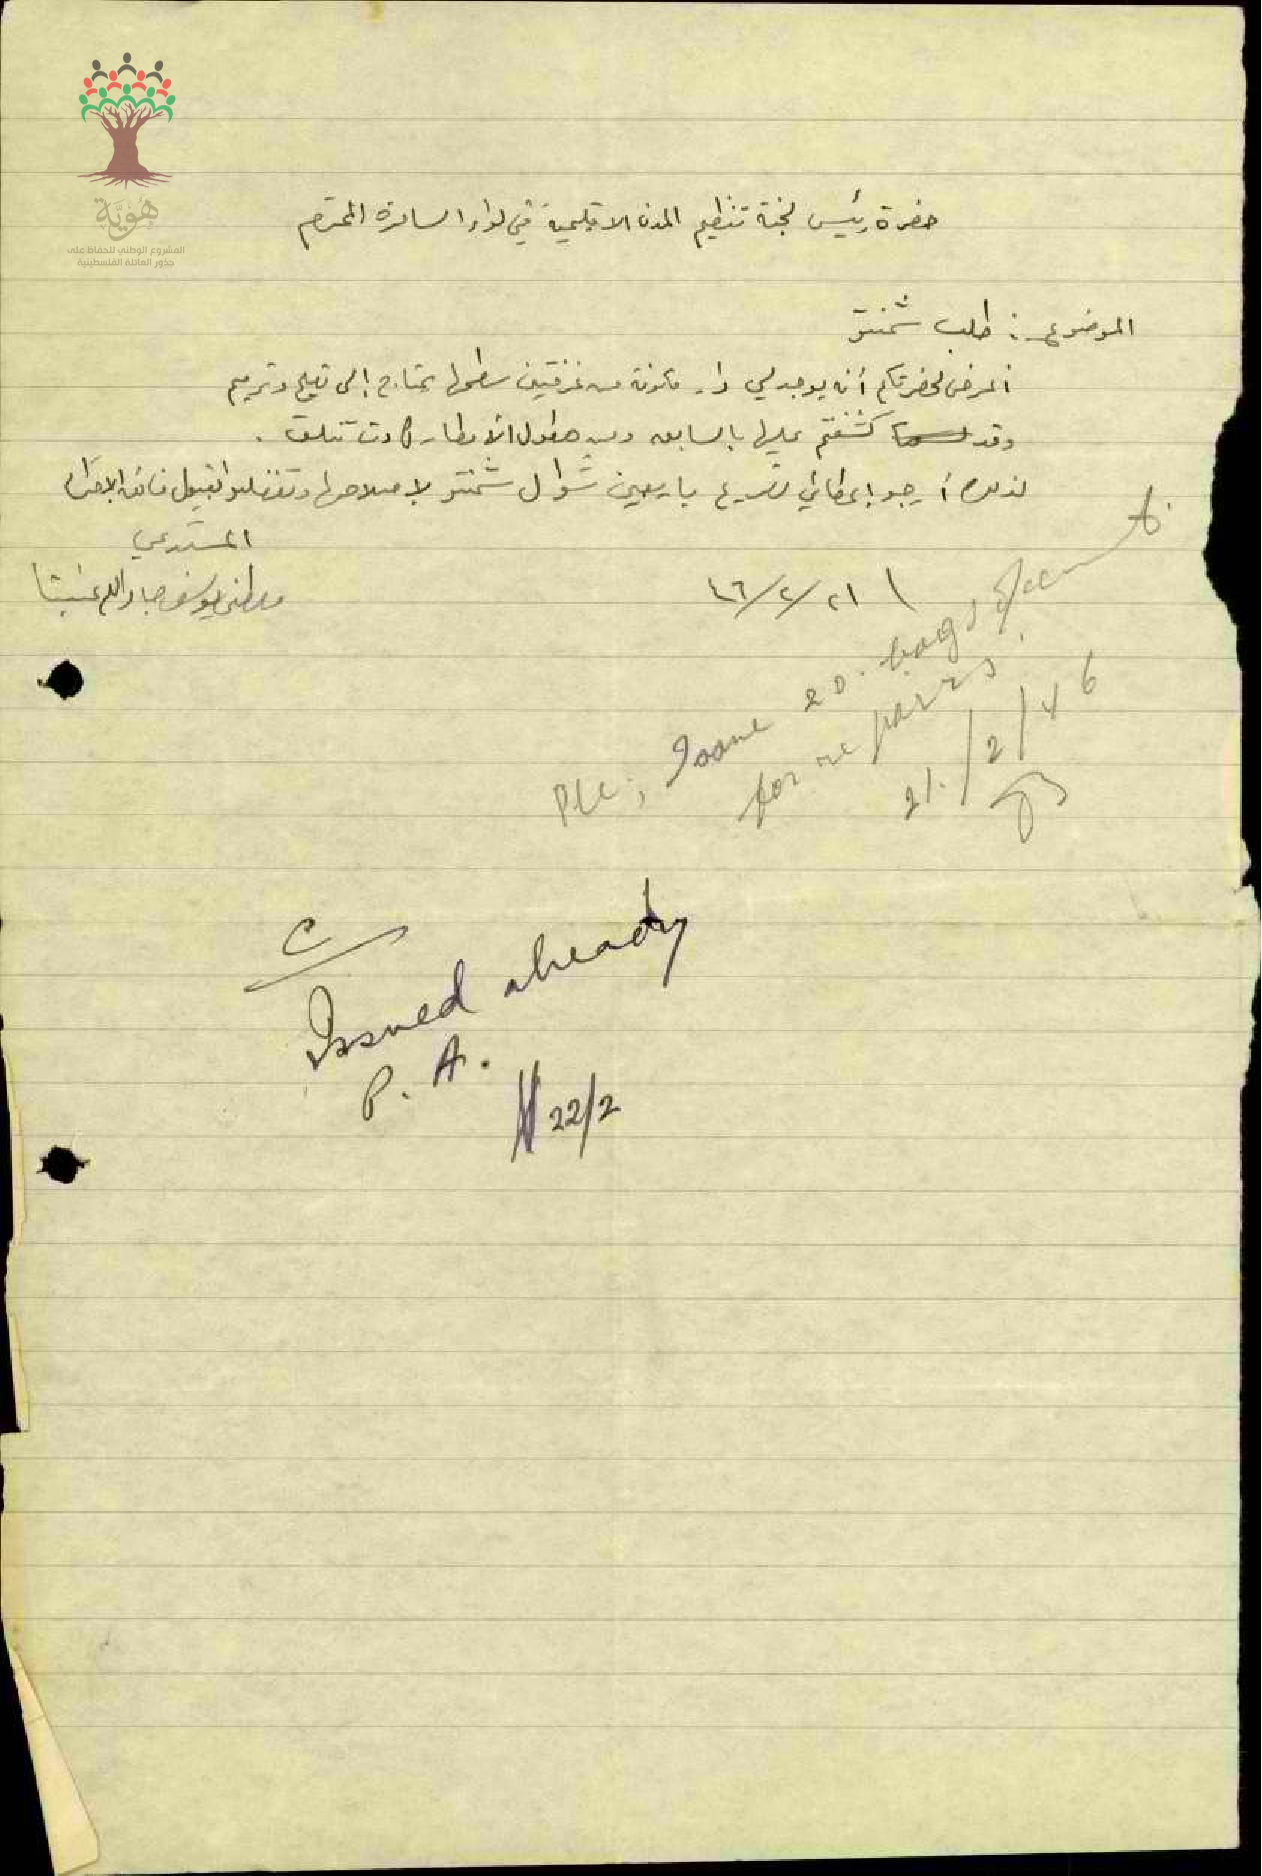 هُوِيَّة
المشروع الوطني للحفاظ على
جذور العائلة الفلسطينية
حضرة رئيس لجنة تنظيم المدن الاقليمية في لواء السامرة المحترم
الموضوع : طلب شمنتو
أعرض لحضرتكم أنه يوجد لي دار مكونة من غرفتين سطحها يحتاج إلى تصليح وترميم
وقد كشفتم عليها بالسابق ومن هطول الأمطار كادت تتلف .
لذلك أرجو إعطائي تصريح باربعين شوال شمنتو لإصلاحها وتفضلوا بقبول فائق الاحترام
المستدعي
٢١/٢/٤٦
مصطفى يوسف جاد الله
Ple; Issue 20. bags of cement
for repairs.
21./2/46
C
Issued already
P. A.
22/2